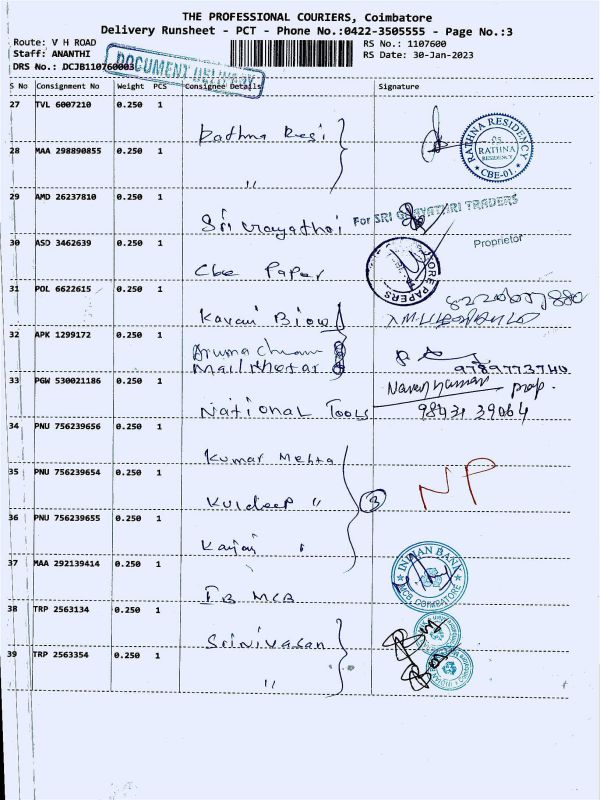 THE PROFESSIONAL COURIERS, Coimbatore
Delivery Runsheet - PCT - Phone No.:0422-3505555 - Page No.:3
Route: V H ROAD
Staff: ANANTHI
DRS No.: DCJB110760003
RS No.: 1107600
RS Date: 30-Jan-2023
DOCUMENT DELIVERY
S No Consignment No Weight PCS Consignee Details Signature
27 TVL 6007210 0.250 1
Rathna Resi
RATHNA RESIDENCY
RATHNA
RESIDENCY
CBE-01.
28 MAA 298890855 0.250 1
"
29 AMD 26237810 0.250 1
Sri Gayathri
For SRI GAYATHRI TRADERS
Proprietor
30 ASD 3462639 0.250 1
Cbe Paper
PAPERS
31 POL 6622615 0.250 1
32 APK 1299172 0.250 1
Arunachalam
9789773740
33 PGW 530021186 0.250 1
National Tools
prop.
98431 39064
34 PNU 756239656 0.250 1
Kumar Mehta
35 PNU 756239654 0.250 1
Kuldeep "
3
NP
36 PNU 756239655 0.250 1
37 MAA 292139414 0.250 1
IB MCB
INDIAN BANK
MCB, COIMBATORE
38 TRP 2563134 0.250 1
Srinivasan
39 TRP 2563354 0.250 1
"